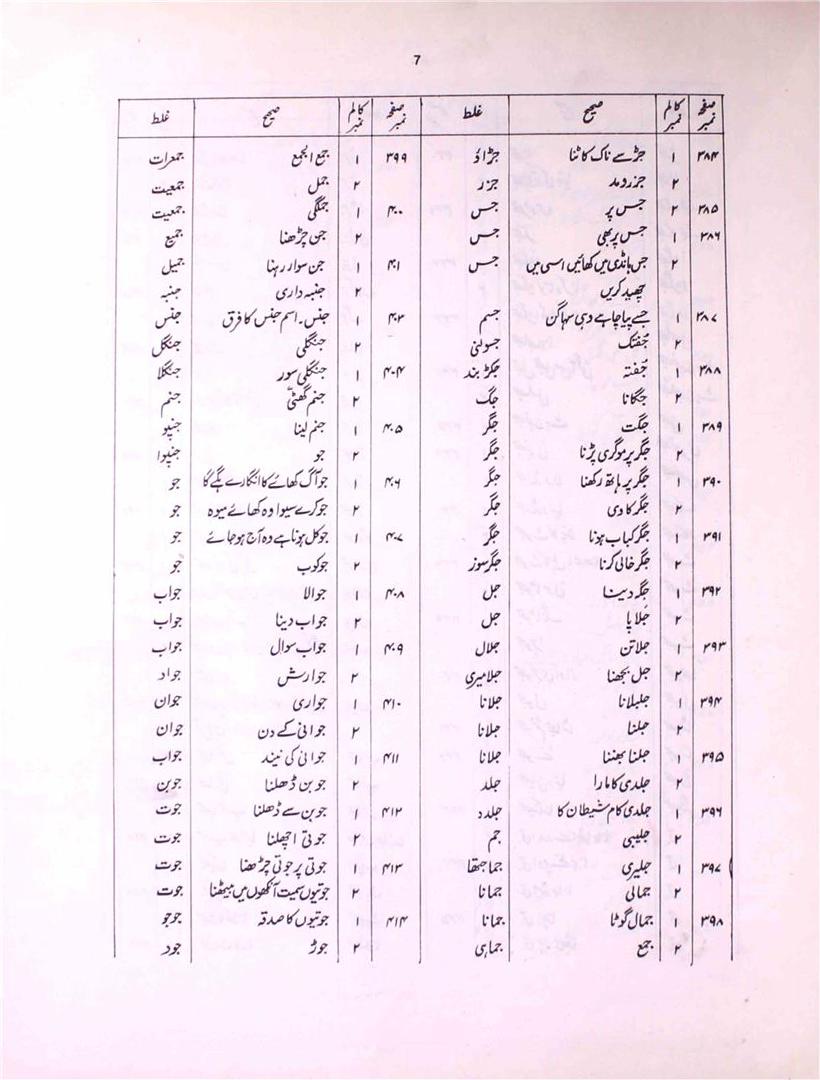 7
صفحہ نمبر کالم نمبر صحیح غلط صفحہ نمبر کالم نمبر صحیح غلط
۳۸۴ ۱ جڑے ناک کاٹنا جڑاؤ ۳۹۹ ۱ جمع الجمع جمعرات
۲ جزر و مد جزر ۲ جمل جمعیت
۳۸۵ ۲ جس پر جس ۴۰۰ ۱ جمگی جمعیت
۳۸۶ ۱ جس پر بھی جس ۲ جن چڑھنا جمیع
۲ جس ہانڈی میں کھائیں اسی میں جس ۴۰۱ ۱ جن سوار رہنا جمیل
چھید کریں ۲ جنبہ داری جنبہ
۳۸۷ ۱ جسے پیا چاہے وہی سہاگن جسم ۴۰۲ ۱ جنس۔ اسم جنس کا فرق جنس
۲ جُفتک جسولنی ۲ جنگلی جنگل
۳۸۸ ۱ جُفتہ جکڑ بند ۴۰۴ ۱ جنگلی سور جنگلا
۲ جگانا جگ ۲ جنم گھٹی جنم
۳۸۹ ۱ جگت جگر ۴۰۵ ۱ جنم لینا جنپو
۲ جگر پر موگری پڑنا جگر ۲ جو جنپوا
۳۹۰ ۱ جگر پر ہاتھ رکھنا جگر ۴۰۶ ۱ جو آگ کھائے گا انگارے ہگے گا جو
۲ جگر کاوی جگر ۲ جو کرے سیوا وہ کھائے میوہ جو
۳۹۱ ۱ جگر کباب ہونا جگر ۴۰۷ ۱ جو کل ہونا ہے وہ آج ہو جائے جو
۲ جگر خالی کرنا جگر سوز ۲ جوکوب جو
۳۹۲ ۱ جگر دینا جل ۴۰۸ ۱ جوالا جواب
۲ جلاپا جل ۲ جواب دینا جواب
۲۹۳ ۱ جلاتن جلال ۴۰۹ ۱ جواب سوال جواب
۲ جل بجھنا جلامیری ۲ جوارش جواد
۳۹۴ ۱ جلبلانا جلانا ۴۱۰ ۱ جواری جوان
۲ جلنا جلانا ۲ جوانی کے دن جوان
۳۹۵ ۱ جلنا بھننا جلانا ۴۱۱ ۱ جوانی کی نیند جواب
۲ جلدی کا مارا جلد ۲ جوبن ڈھلنا جوبن
۳۹۶ ۱ جلدی کام شیطان کا جلدد ۴۱۲ ۱ جوبن سے ڈھلنا جوت
۲ جلیبی جم ۲ جوتی اچھلنا جوت
۳۹۷ ۱ جلیری جماجتھا ۴۱۳ ۱ جوتی پر جوتی چڑھنا جوت
۲ جمالی جمانا ۲ جوتیوں سمیت آنکھوں میں بیٹھنا جوت
۳۹۸ ۱ جمال گوٹا جمانا ۴۱۴ ۱ جوتیوں کا صدقہ جوجو
۲ جمع جماہی ۲ جوڑ جود